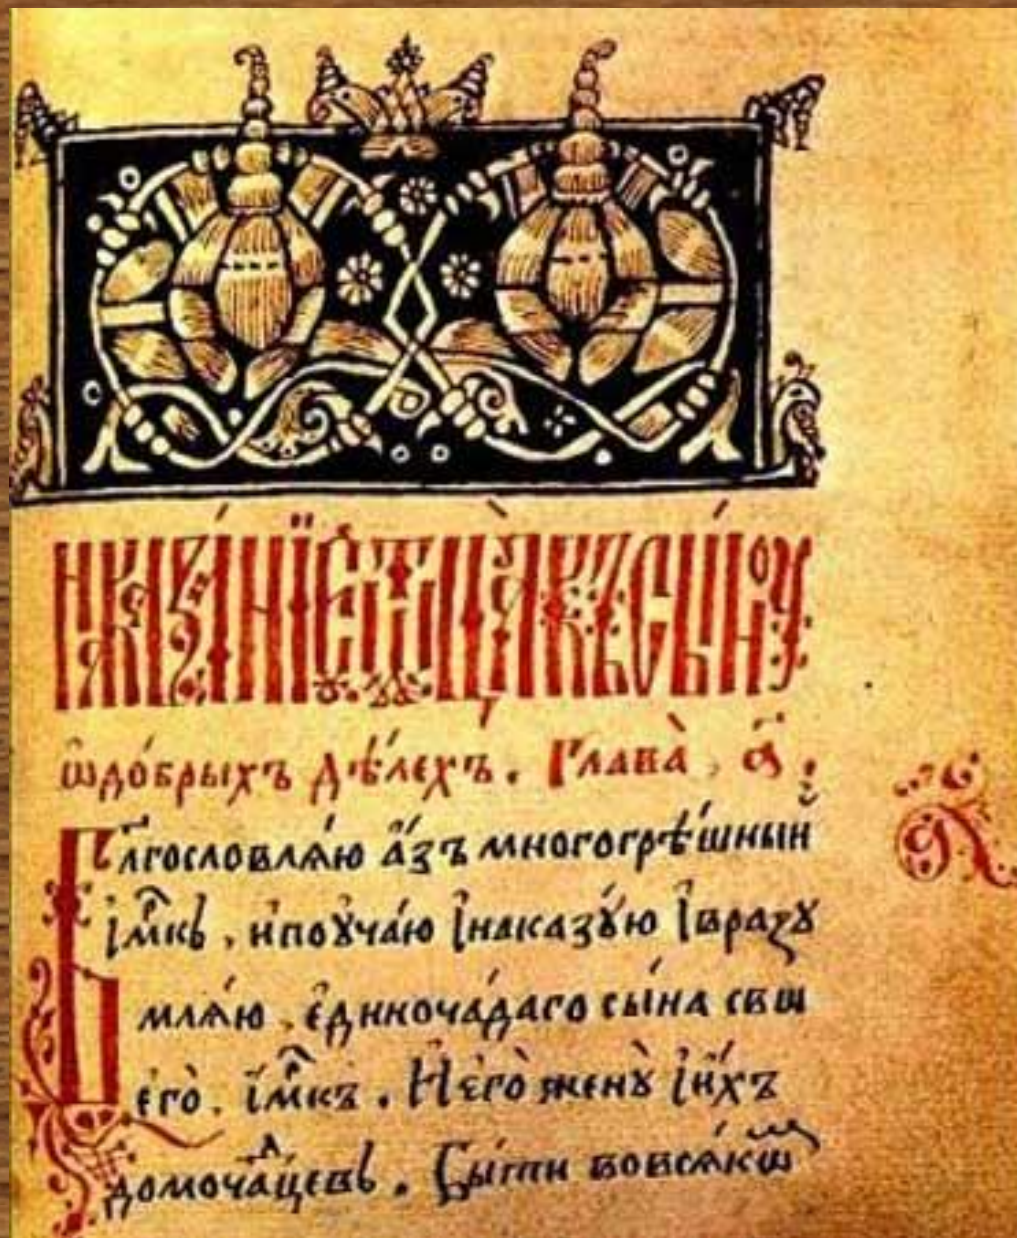 Наказа́нїе ѿ ѻтца̀ къ сы́нꙋ
ѡ до́брыхъ дѣ́лехъ. Глава̀, а҃.
Блгⷭ҇ословлѧ́ю а҆́зъ многогрѣ́шныи
і҆́мкъ, и поꙋча́ю і҆ наказꙋ́ю і҆ вразꙋ
млѧ́ю, є҆диноча́даго сы́на сво
его̀. і҆́мкъ. И є҆го̀ женꙋ̀ і҆ и҆́хъ
домоча́децевъ. Бы́ти во всѧ́кѡ
а҃